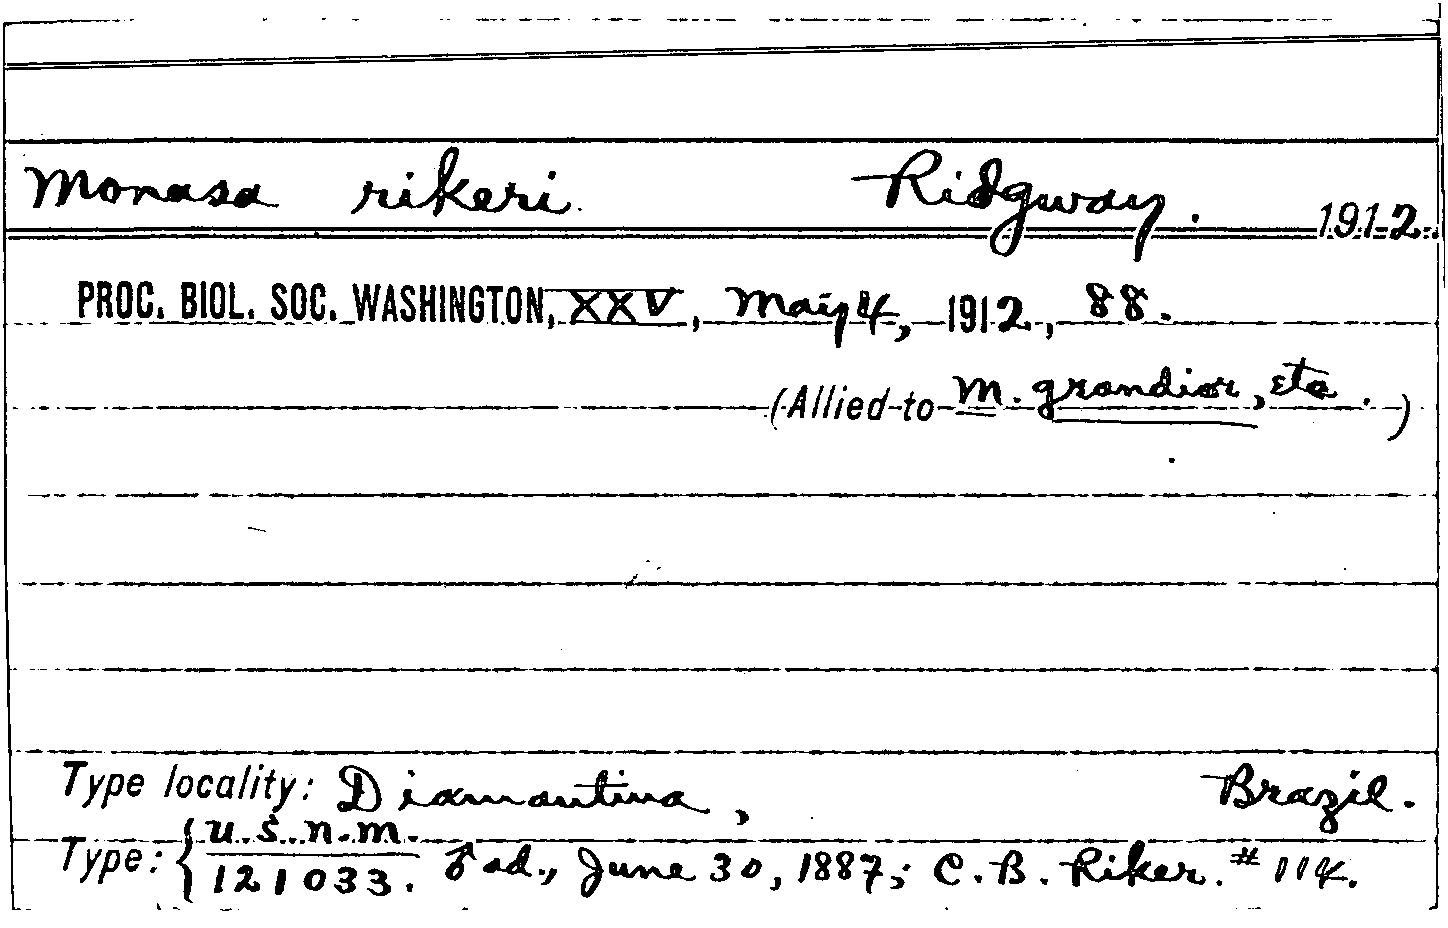 Monasa rikeri. Ridgway. 1912.
PROC. BIOL. SOC. WASHINGTON, XXV, May 4, 1912, 88.
(Allied to M. grandior, etc.)
Type locality: Diamantina, Brazil.
Type: { U.S.N.M.
121033. ♂ ad., June 30, 1887; C. B. Riker. # 114.